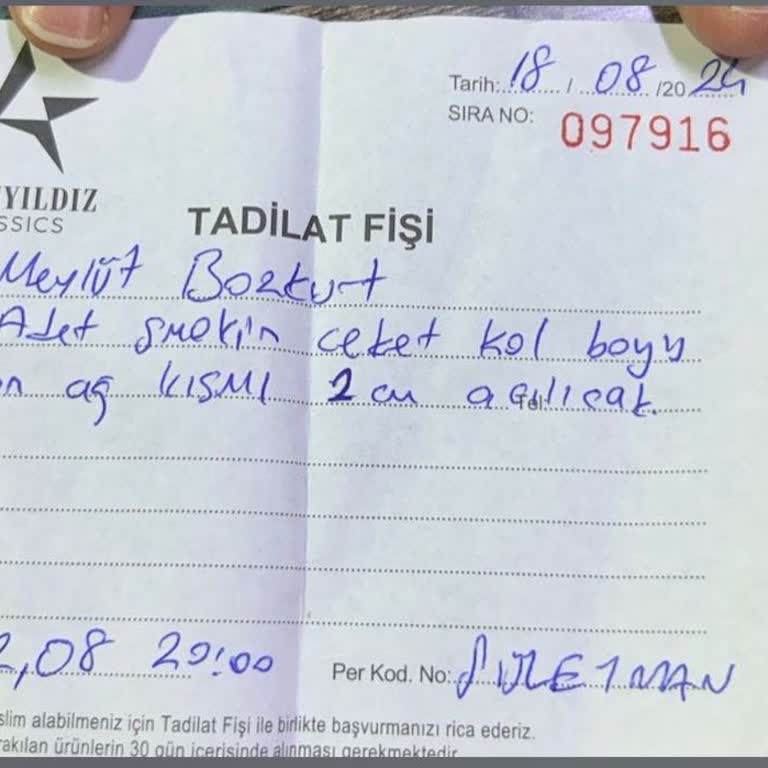 Tarih: 18 / 08 /2024
SIRA NO: 097916
YILDIZ
SSICS
TADİLAT FİŞİ
Mevlüt Bozkurt
Adet smokin ceket kol boyu
n ağ kısmı 2 cm açılıcak.
2,08 20:00
Per Kod. No: SÜLEYMAN
slim alabilmeniz için Tadilat Fişi ile birlikte başvurmanızı rica ederiz.
rakılan ürünlerin 30 gün içerisinde alınması gerekmektedir